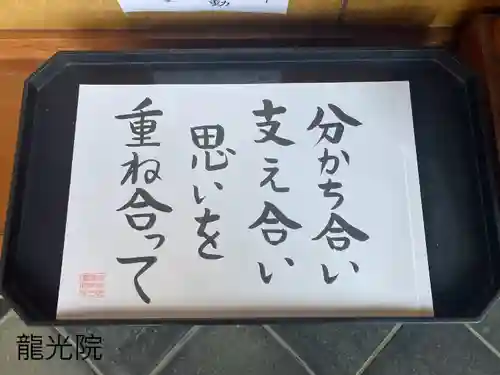 分かち合い
支え合い
思いを
重ね合って
龍光院